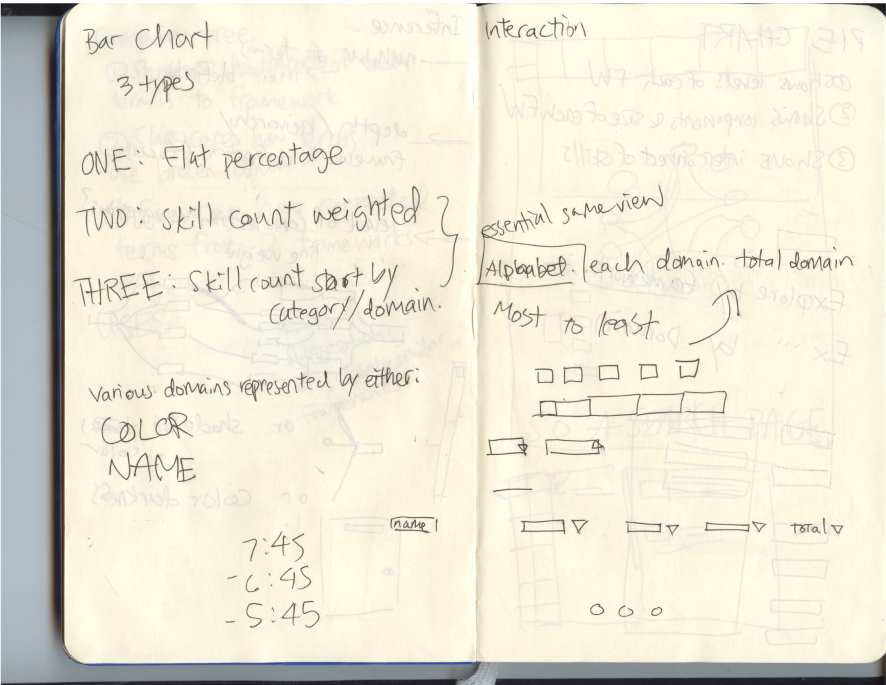 Bar Chart
3 types
ONE: Flat percentage
TWO: skill count weighted
THREE: skill count start by
category/domain.
Various domains represented by either:
COLOR
NAME
name
7:45
- 6:45
- 5:45
Interaction
essential same view
Alphabet. each domain. total domain
Most to least
total